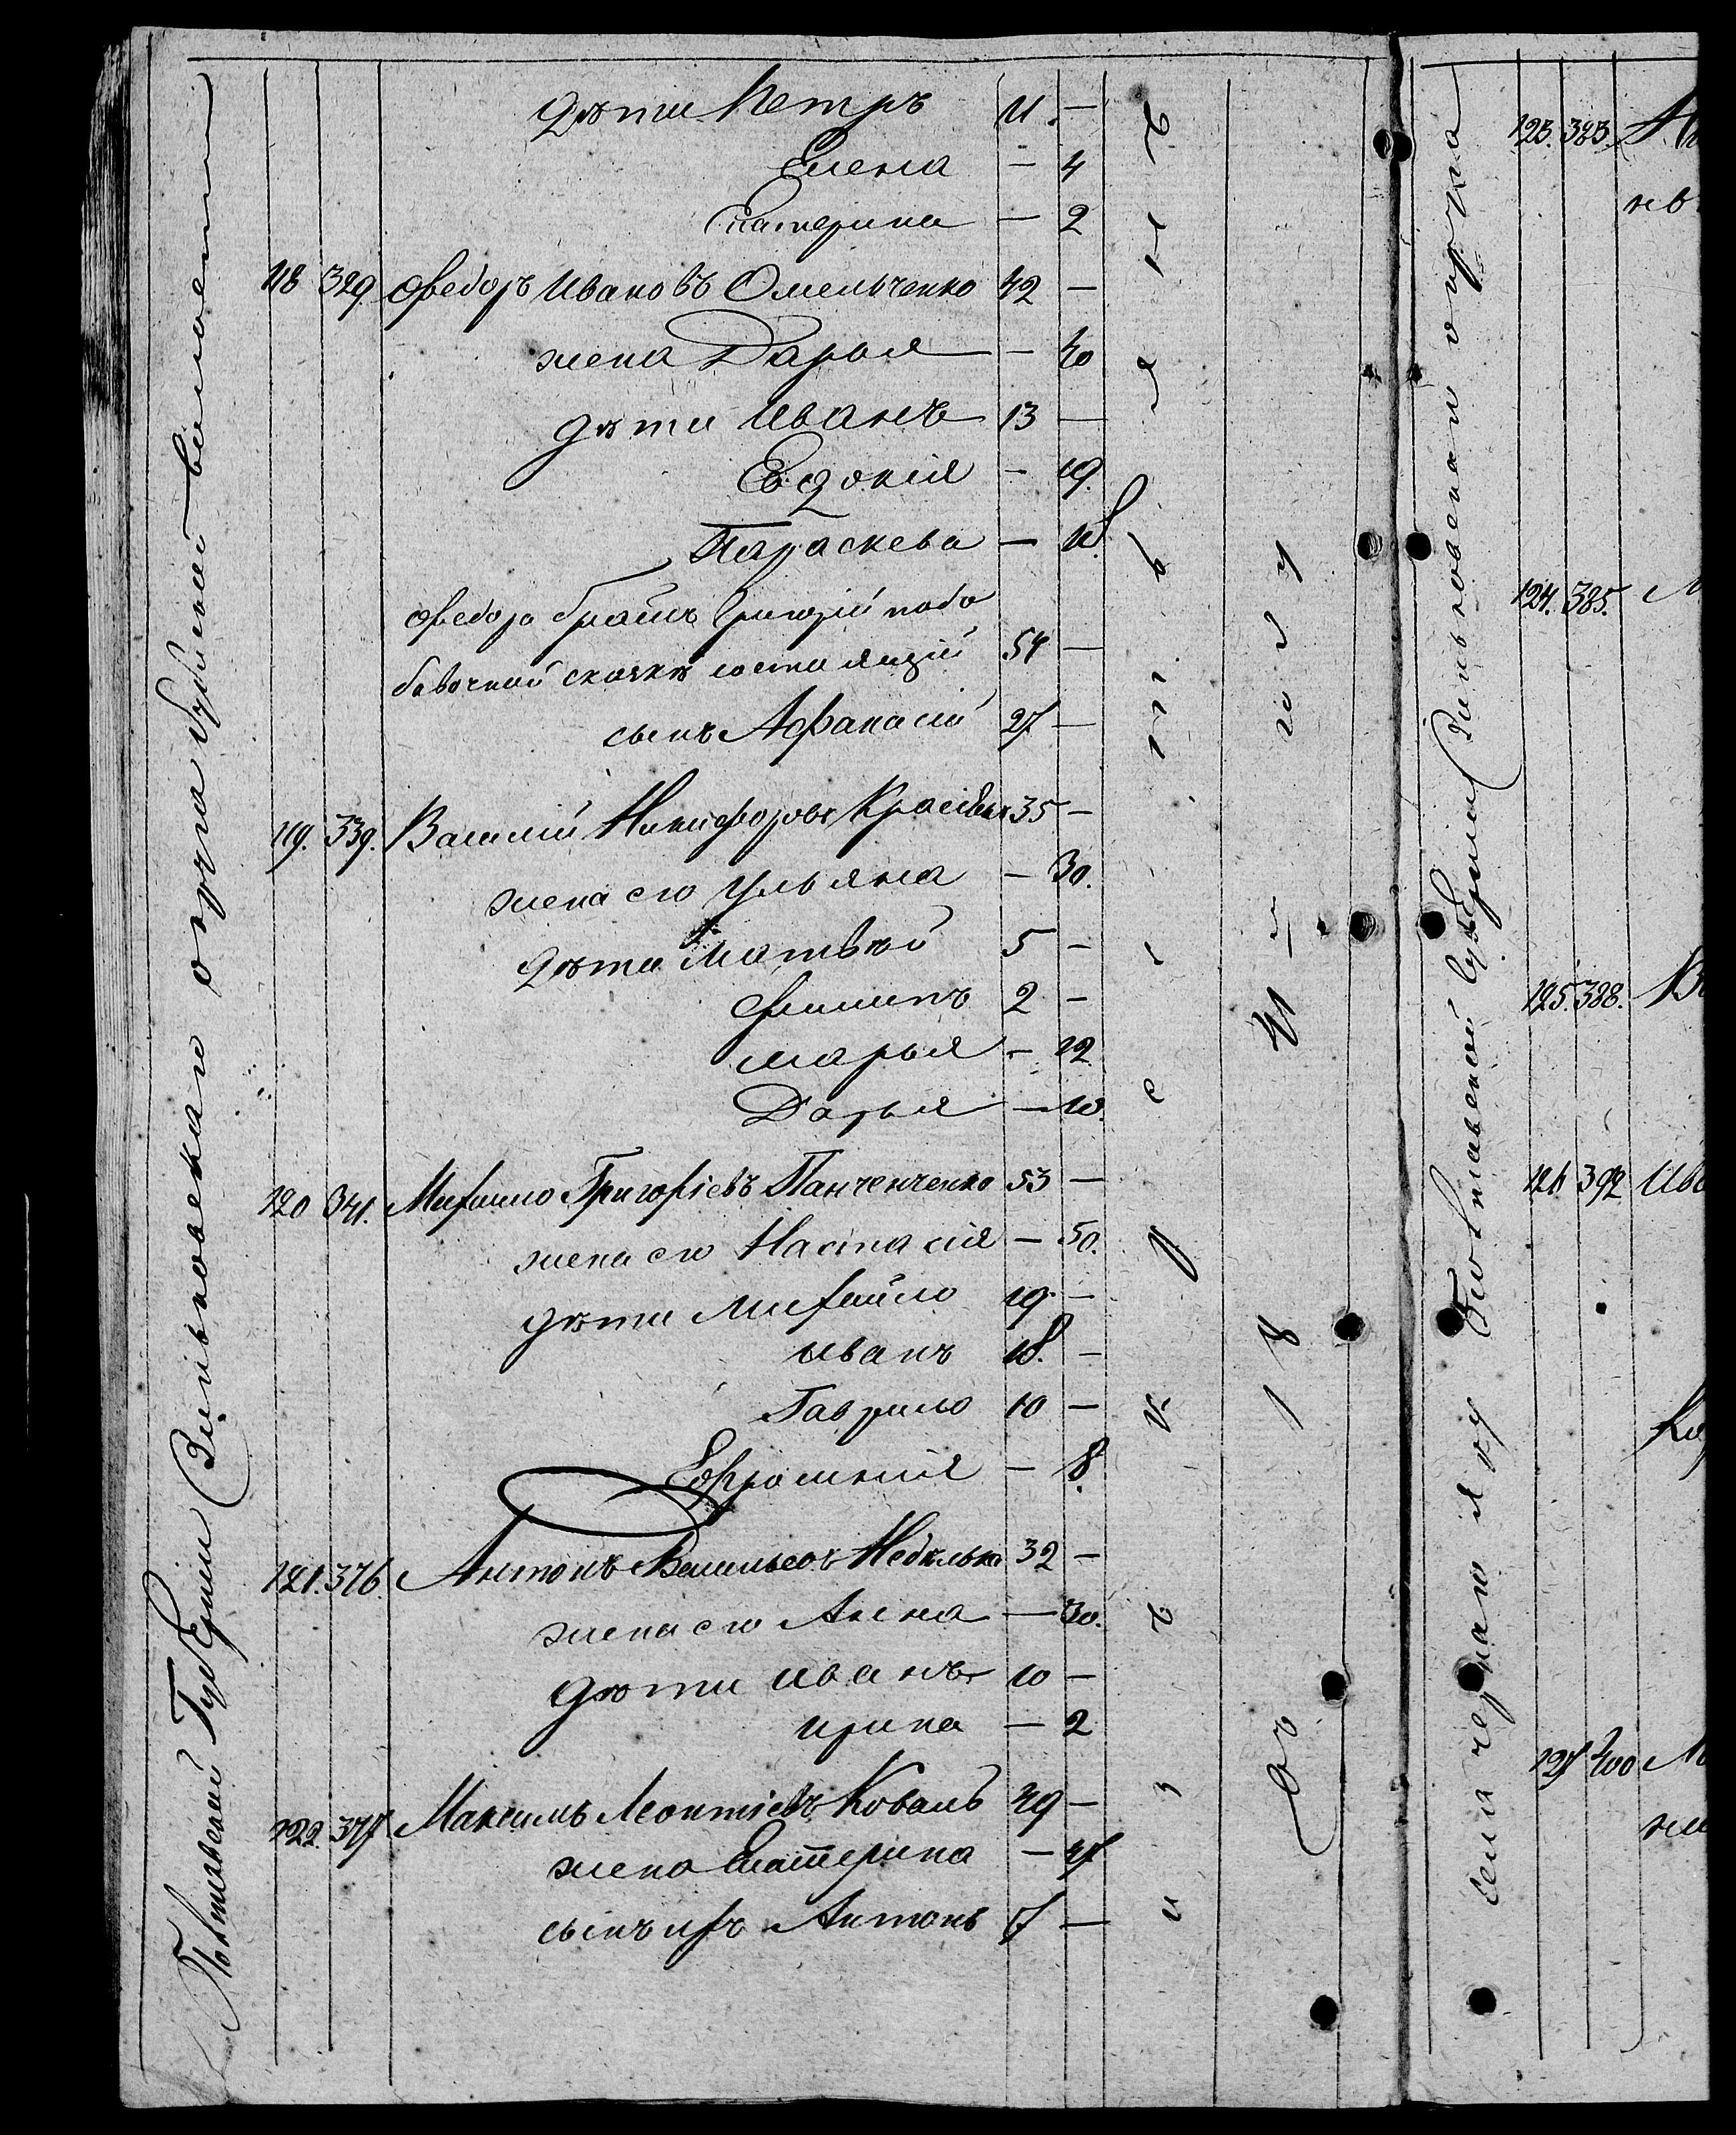 Полтавской Губерніи Зиньковскаго округа
дѣти Петръ 11. —
Елена — 4
Екатерина — 2
118 329 Федоръ Ивановъ Омельченко 42 —
жена Дарья — 40
дѣти Иванъ 13 —
Евдокія — 19.
Параскева — 18.
Федора братъ Григорійподо
бавочной сказкѣ состоящій 54 —
сынъ Афанасій 27 —
119. 339. Василій Никифоровъ 35 —
жена его Ульяна — 30.
дѣти Матвѣй 5 —
Филипъ 2 —
Марья — 12
Дарья — 10.
120 341. Михайло Григоріевъ Панченченко 53 —
жена его Настасія — 50.
дѣти Михайло 19. —
Иванъ 18. —
Гаврило 10 —
Ефросинія — 8.
121. 376. Антонъ Васильевъ 32 —
жена его Анна — 30.
дѣти Иванъ 10 —
Ирина — 2
122. 377 Максимъ Леонтіевъ Коваль 49 —
жена Екатерина — 47
сынъ ихъ Антонъ 7 —
Въ 18
Полтавской Губерніи Зиньковскаго округа
123. 383.
124. 385.
125. 388.
126 392 Ив
127 400